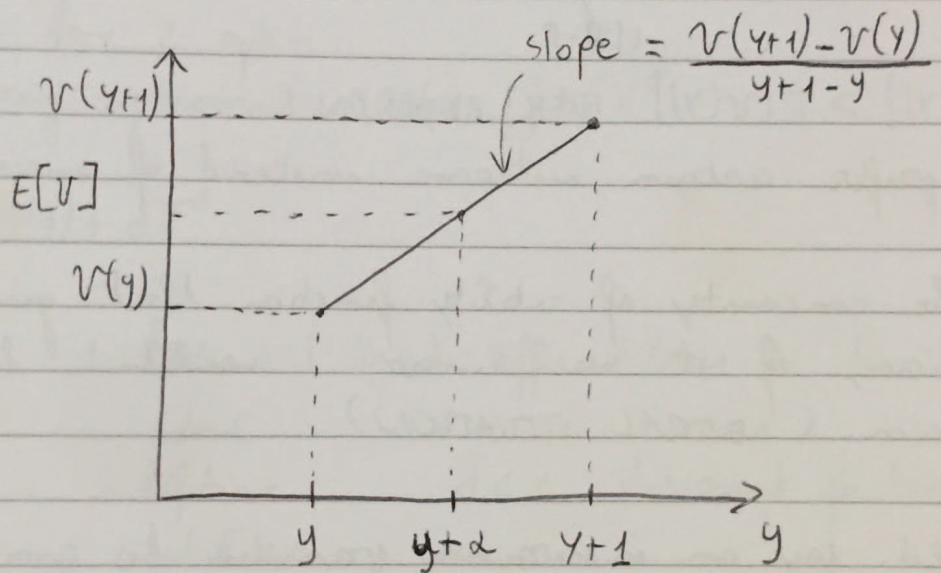 slope = v(y+1) - v(y) / y+1-y
v(y+1)
E[V]
v(y)
y y+α y+1 y